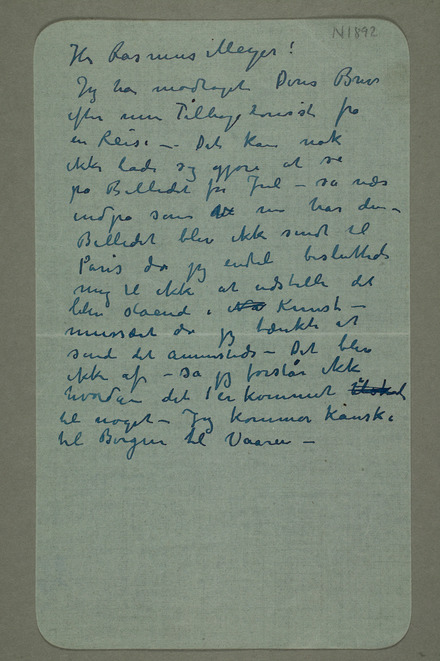 N1892
Hr Rasmus Meyer!
Jeg har modtaget Deres Brev
efter min Tilbagekomst fra
en Reise – Det kan nok
ikke lade sig gjøre at se
på Billedet før Jul – så nær
indpå som nu har den –
Billedet blev ikke sendt til
Paris da jeg endel besluttede
mig til ikke at udstille det
blev stående i Kunst–
museet da jeg tænkte at
sende det annensteds – Det blev
ikke af – så jeg forstår ikke
hvordan det er kommet
til noget – Jeg kommer kanske
til Bergen til Vaaren –